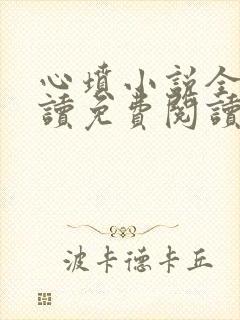 心墳小説全
讀免費閱讀
波卡德卡丘